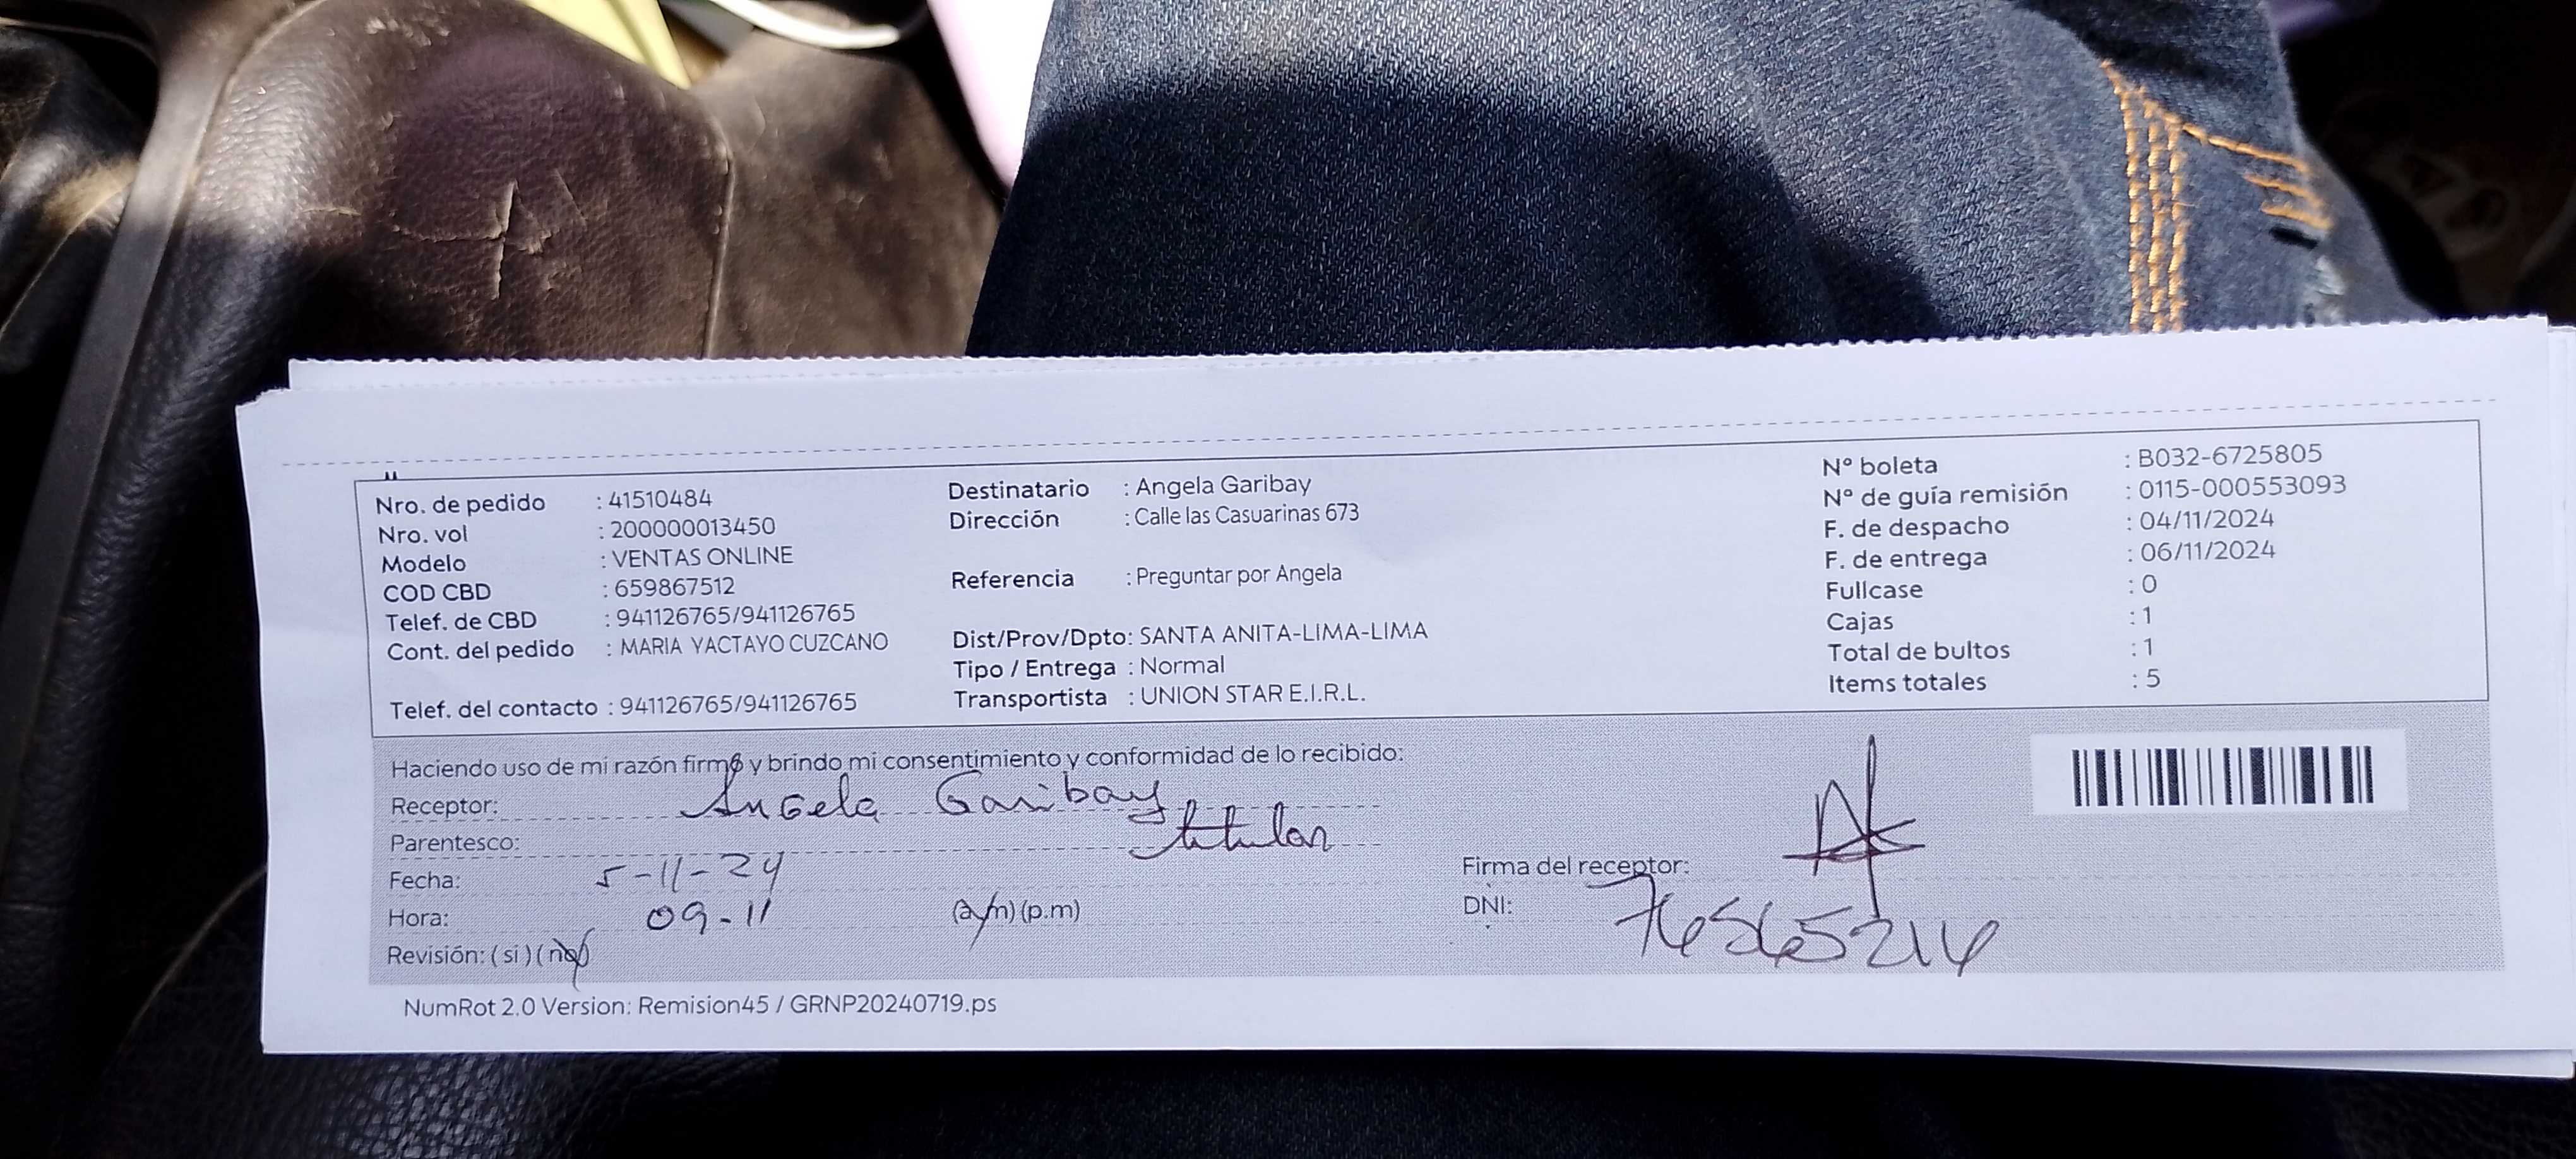 Nro. de pedido : 41510484
Nro. vol : 200000013450
Modelo : VENTAS ONLINE
COD CBD : 659867512
Telef. de CBD : 941126765/941126765
Cont. del pedido : MARIA YACTAYO CUZCANO
Telef. del contacto : 941126765/941126765
Destinatario : Angela Garibay
Dirección : Calle las Casuarinas 673
Referencia : Preguntar por Angela
Dist/Prov/Dpto: SANTA ANITA-LIMA-LIMA
Tipo / Entrega : Normal
Transportista : UNION STAR E.I.R.L.
N° boleta : B032-6725805
N° de guía remisión : 0115-000553093
F. de despacho : 04/11/2024
F. de entrega : 06/11/2024
Fullcase : 0
Cajas : 1
Total de bultos : 1
Items totales : 5
Haciendo uso de mi razón firmo y brindo mi consentimiento y conformidad de lo recibido:
Receptor: Angela Garibay
Parentesco: titular
Fecha: 5-11-24
Hora: 09-11 (a.m) (p.m)
Revisión: (si) (no)
Firma del receptor:
DNI: 76565214
NumRot 2.0 Version: Remision45 / GRNP20240719.ps